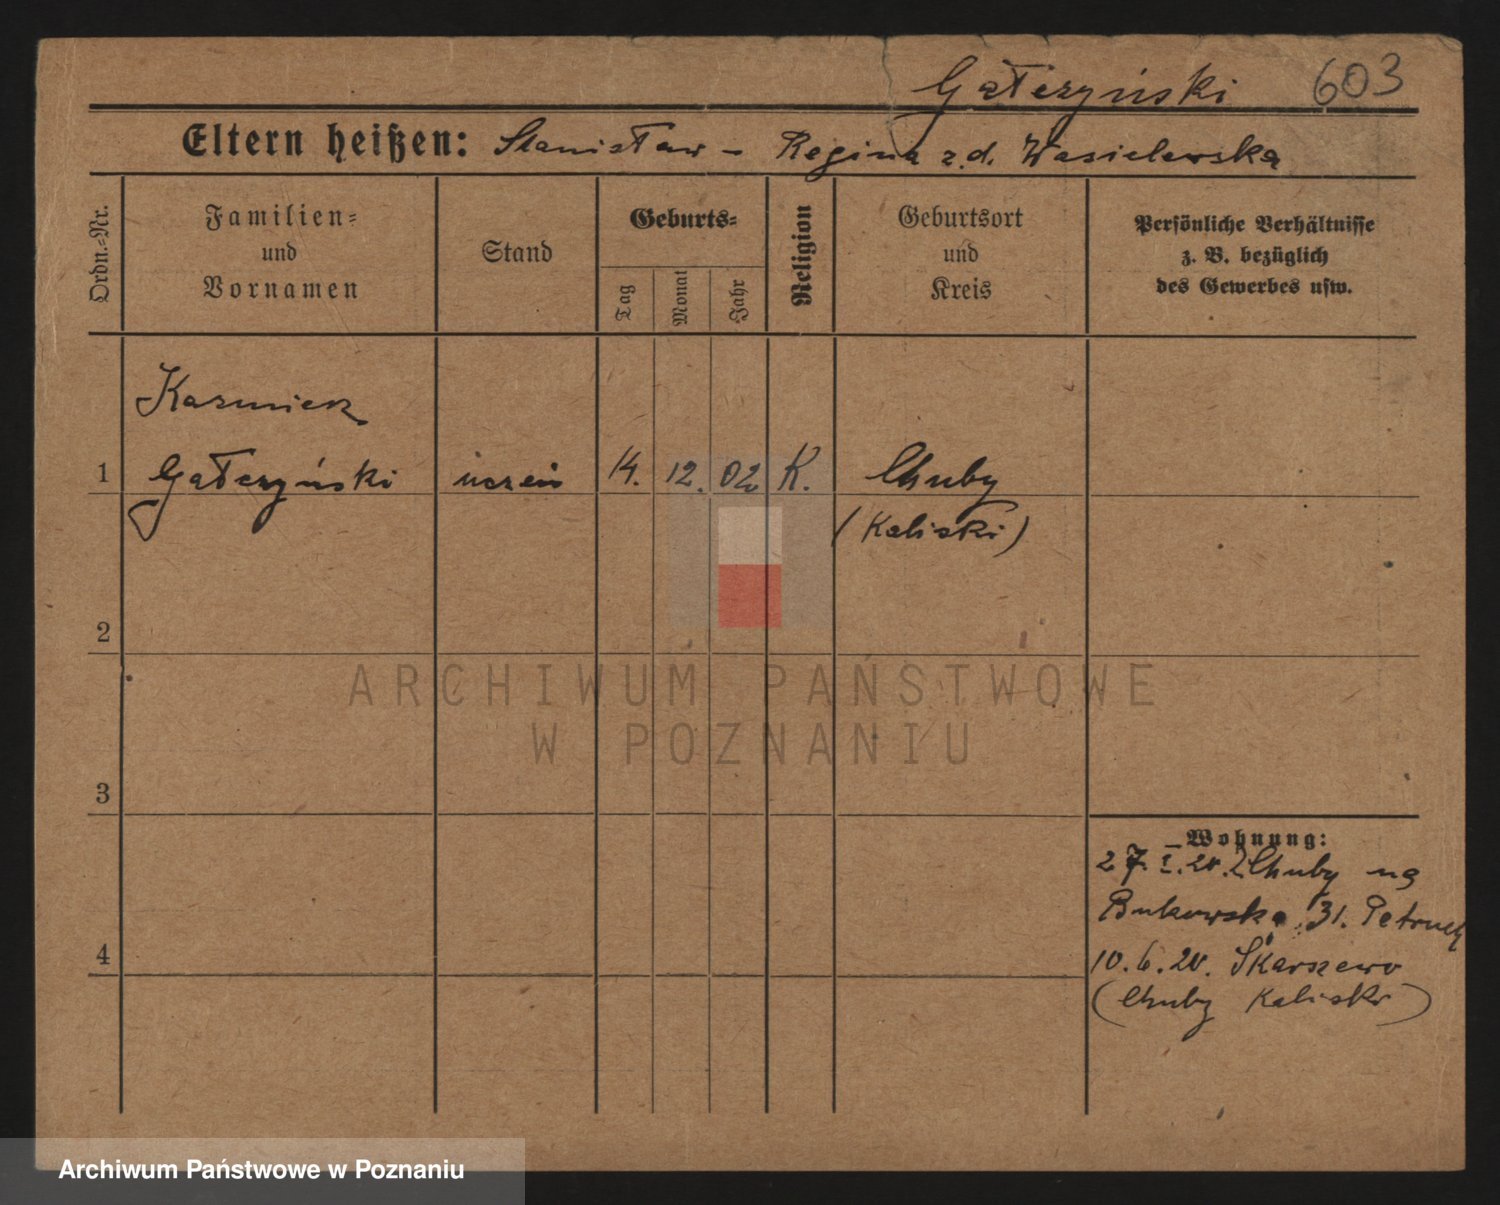 Gałczyński 603
Eltern heißen: Stanisław – Regina z.d. Wasielewska
Ordn.-Nr.
Familien-
und
Vornamen
Stand
Geburts-
Tag
Monat
Jahr
Religion
Geburtsort
und
Kreis
Persönliche Verhältnisse
z. B. bezüglich
des Gewerbes usw.
Kazmierz
1 Gałczyński uczeń 14. 12. 02 K. Chuby
(Kaliski)
2
ARCHIWUM PAŃSTWOWE
W POZNANIU
3
Wohnung:
27. I. 20. Chuby na
Bukowska 31.
4
10. 6. 20. Skarszewo
(Chuby Kaliski)
Archiwum Państwowe w Poznaniu